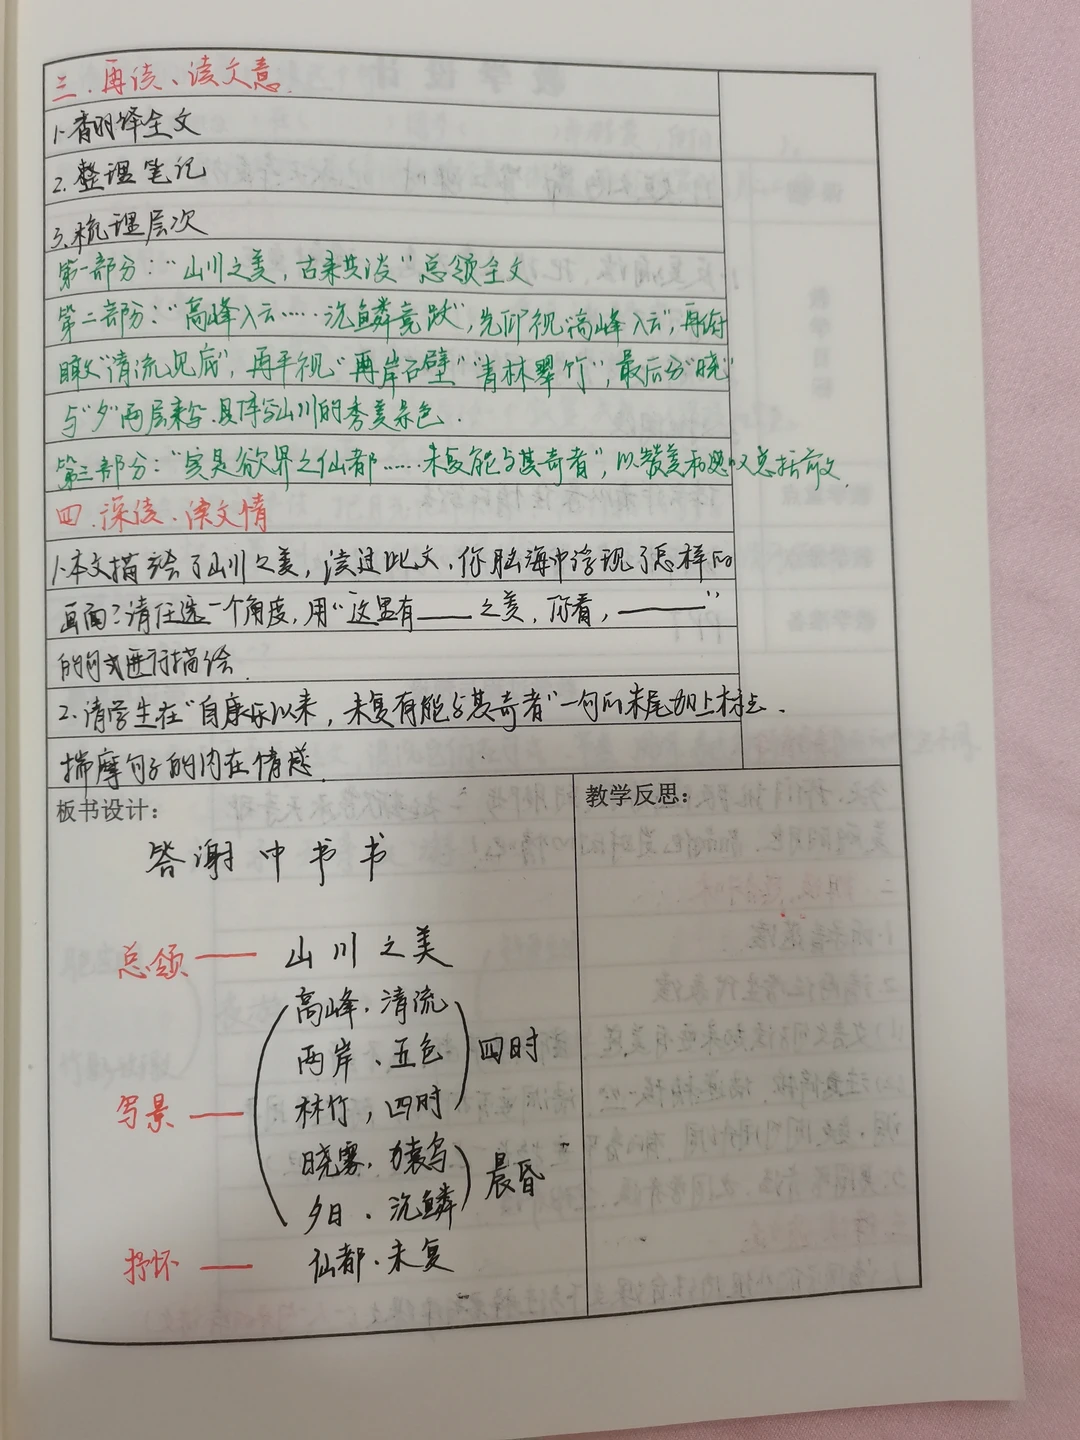 三、再读、读文意.
1、翻译全文
2、整理笔记
3、梳理层次
第一部分：“山川之美，古来共谈”总领全文
第二部分：“高峰入云……沉鳞竞跃”，先仰视“高峰入云”，再俯
瞰“清流见底”，再平视“两岸石壁”“青林翠竹”，最后分“晓”
与“夕”两层来写.具体写山川的秀美景色.
第三部分：“实是欲界之仙都……未复能与其奇者”，以赞美和感叹总括前文.
四、深读、读文情
1、本文描绘了山川之美，读过此文，你脑海中浮现了怎样的
画面？请任选一个角度，用“这里有——之美，你看，———”
的句式进行描绘.
2、请学生在“自康乐以来，未复有能与其奇者”一句的末尾加上标点.
揣摩句子的内在情感.
板书设计：
答谢中书书
总领——山川之美
高峰、清流
两岸、五色 四时
写景——林竹，四时
晓雾，猿鸟 晨昏
夕日、沉鳞
抒怀——仙都、未复
教学反思：